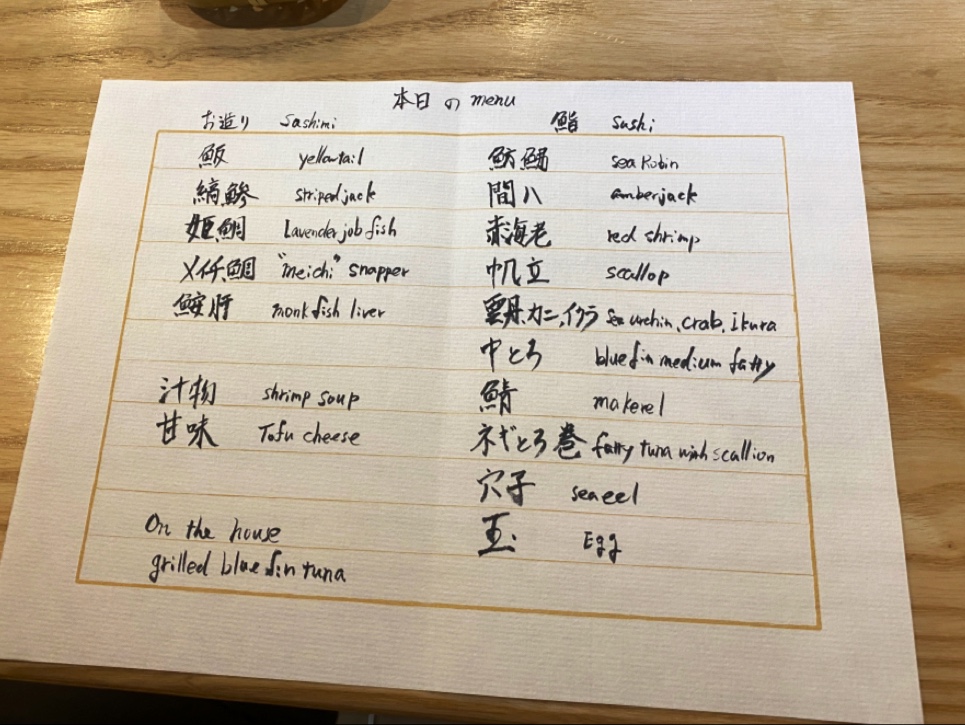 本日の menu
お造り Sashimi
魬 yellowtail
縞鯵 striped jack
姫鯛 Lavender job fish
メイチ鯛 "meichi" snapper
鮟肝 monk fish liver
汁物 shrimp soup
甘味 Tofu cheese
On the house
grilled blue fin tuna
鮨 Sushi
魴鮄 sea Robin
間八 amberjack
赤海老 red shrimp
帆立 scallop
雲丹、カニ、イクラ Sea urchin, crab, Ikura
中とろ blue fin medium fatty
鯖 makerel
ネギとろ巻 fatty tuna with scallion
穴子 sea eel
玉 Egg